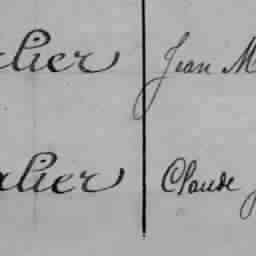 lier Jean M
lier Claude